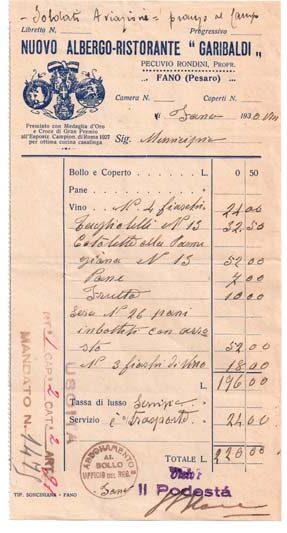 Soldati Aviazione = pranzo al Campo
Libretto N. Progressivo
NUOVO ALBERGO-RISTORANTE "GARIBALDI"
PECUVIO RONDINI, PROPR.
FANO (Pesaro)
Camera N. Coperti N.
Premiato con Medaglia d'Oro
e Croce di Gran Premio
all'Esposiz. Campion. di Roma 1927
per ottima cucina casalinga
Fano 193
Sig. Municipio
Bollo e Coperto L. 0 50
Pane
Vino N 4 fiaschi 24 00
Tagliatelli N 13 32.50
Cotolette alla Parmi
giana N 13 52.00
Pane 7 00
Frutta 10 00
Sera N 26 pani
imbottiti con arro
sto 52.00
N 3 fiaschi di Vino 18.00
L. 196 00
Tassa di lusso Servizio
Servizio e Trasporto 24 00
TOTALE L. 220.00
ABBONAMENTO
AL
BOLLO
UFFICIO DEL REG.
Fano
USCITA
MANDATO N.
Visto:
Il Podestá
TIP. SONCINIANA - FANO